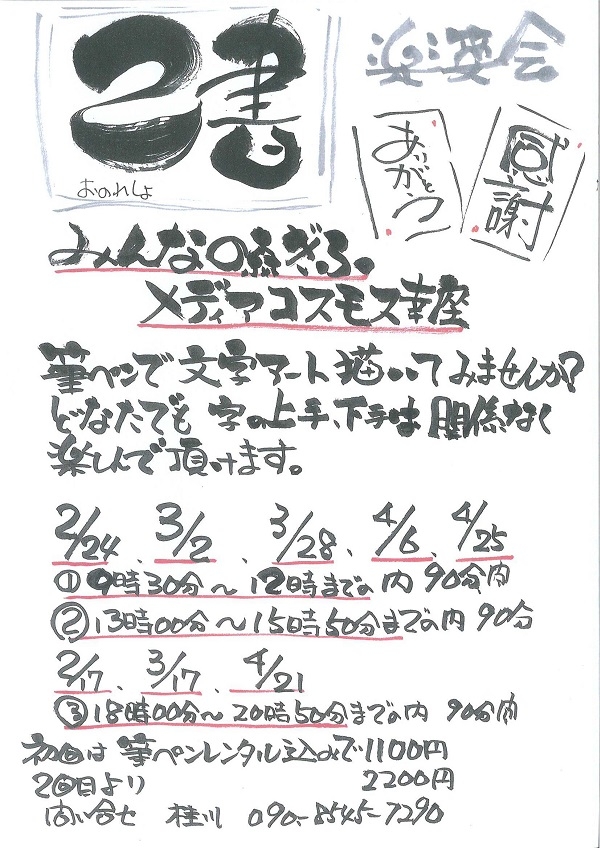 己書
おのれしょ
楽愛会
ありがとう
感謝
みんなの森ぎふ。
メディアコスモス幸座
筆ペンで文字アート描いてみませんか?
どなたでも 字の上手、下手は関係なく
楽しんで頂けます。
2/24、3/2、3/28、4/6、4/25
①9時30分〜12時までの内 90分内
②13時00分〜15時50分までの内 90分
2/17、3/17、4/21
③18時00分〜20時50分までの内 90分内
初回は筆ペンレンタル込みで1100円
2回目より 2200円
問い合せ 桂川 090-8545-7290